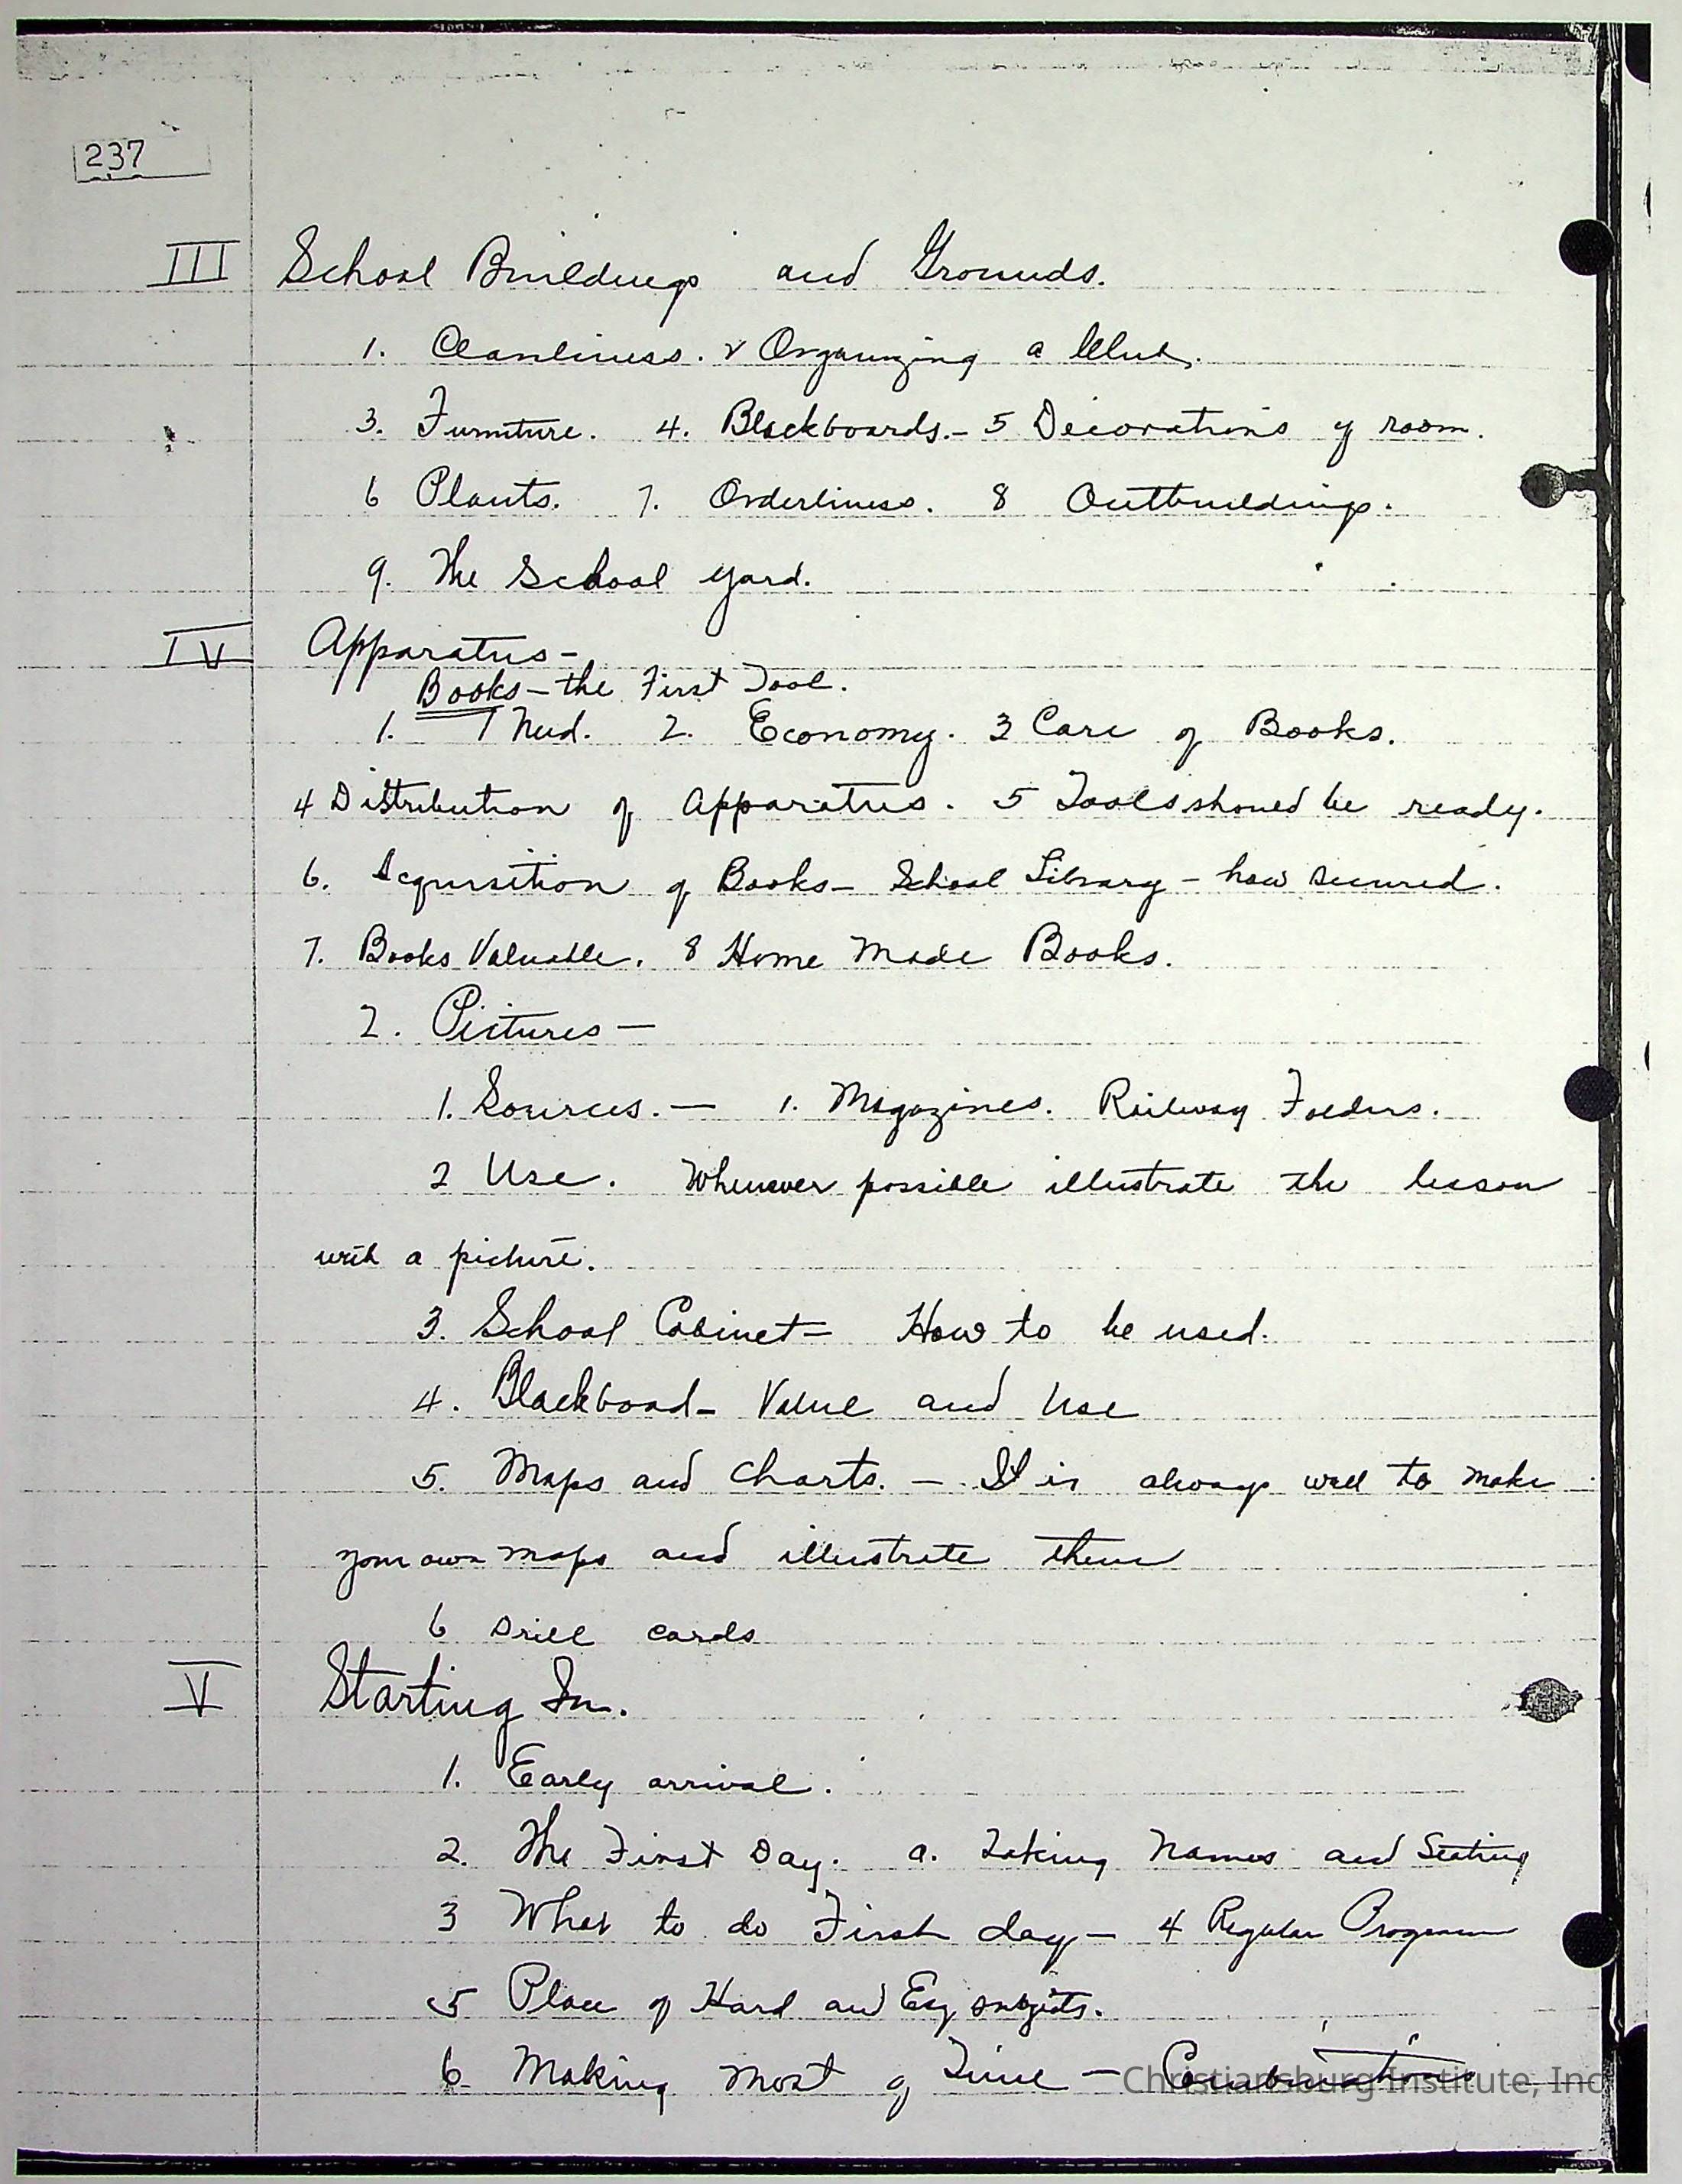 237
III School Buildings and Grounds.
1. Cleanliness. 2 Organizing a Club.
3. Furniture. 4. Blackboards.- 5 Decorations of room.
6 Plants. 7. Orderliness. 8 Outbuildings.
9. The School yard.
IV Apparatus-
Books-the First Tool.
1. 1 Need. 2. Economy. 3 Care of Books.
4 Distribution of Apparatus. 5 Tools should be ready.
6. Acquisition of Books- School Library - how secured.
7. Books Valuable. 8 Home Made Books.
2. Pictures-
1. Sources.- 1. Magazines. Railway Folders.
2 Use. Whenever possible illustrate the lesson
with a picture.
3. School Cabinet- How to be used.
4. Blackboad- Value and Use
5. Maps and Charts. - It is always well to make
your own maps and illustrate them
6 Drill cards
V Starting In.
1. Early arrival.
2. The First Day. a. Taking Names and Seating
3 What to do First day- 4 Regular Program
5 Place of Hard and Esy subjects.
6 Making most of Time - Combinations
Christiansburg Institute, Inc